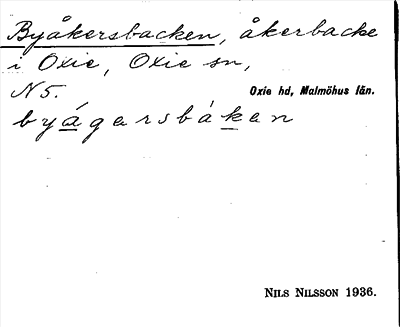 Byåkersbacken, åkerbacke
i Oxie, Oxie sn,
N 5. Oxie hd, Malmöhus län.
byágersbáken
NILS NILSSON 1936.